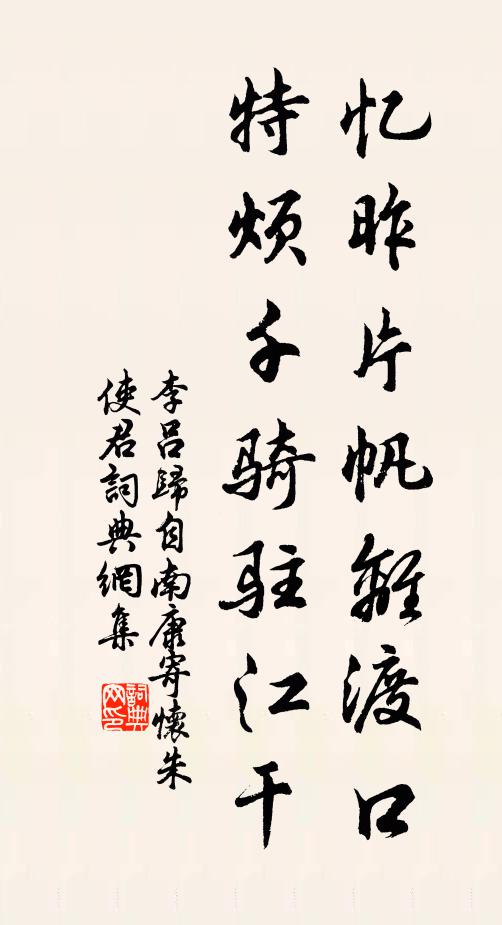 忆昨片帆離渡口
特烦千骑驻江干
李吕歸自南康寄懷朱
使君詞典網集
詞典网印